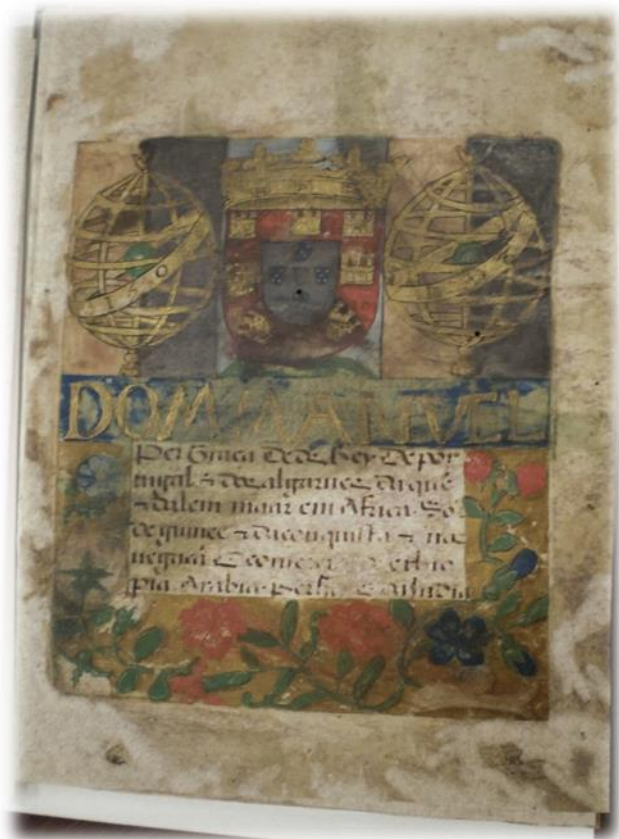 DOM MANVEL
Per Graca de ds Rey de por
tugal & dos algarues daque
& dalem maar em Africa So
de guinee & da conquista & na
uegaçã Comerçio d ethio
pia Arabia Persia & da India